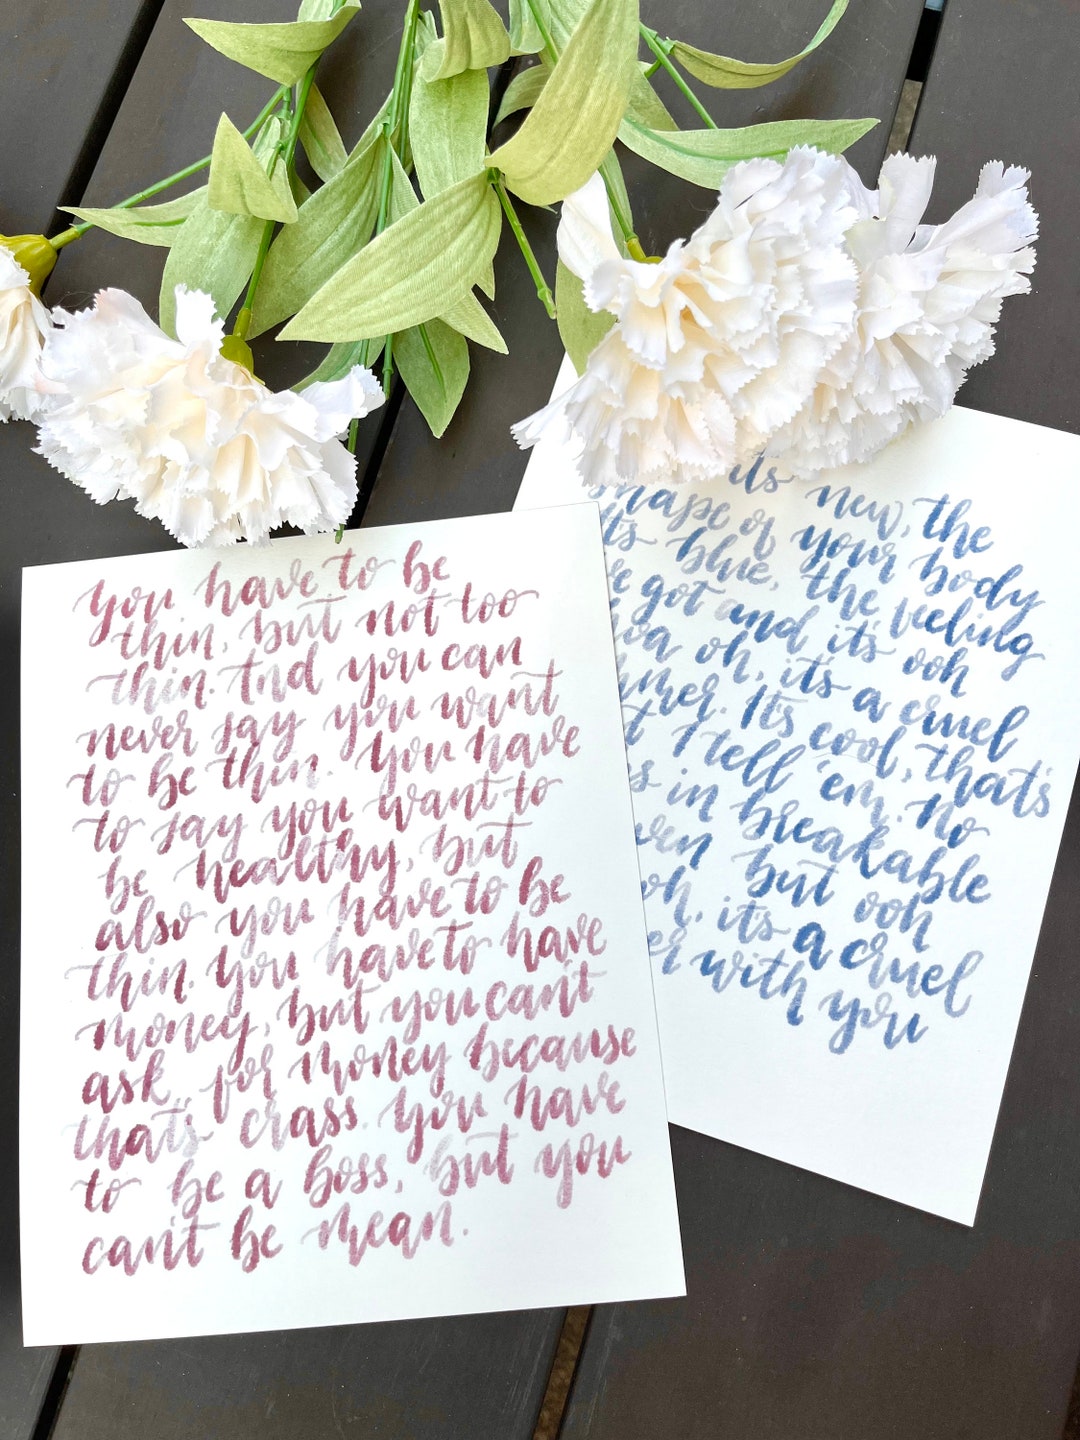 You have to be
thin, but not too
thin. And you can
never say you want
to be thin. You have
to say you want to
be healthy, but
also you have to be
thin. You have to have
money, but you can't
ask for money because
that's crass. You have
to be a boss, but you
can't be mean.
its new, the
shape of your body
blue, the feeling
got and it's ooh
oh, it's a cruel
It's cool, that's
I tell 'em. No
in breakable
but ooh
it's a cruel
with you